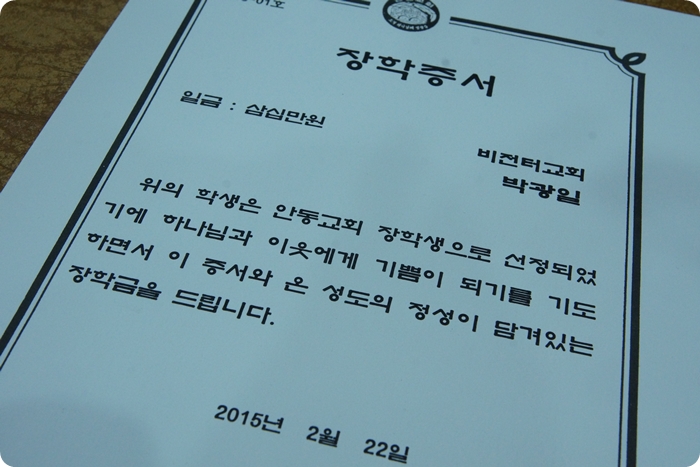 장학증서
일금 : 삼십만원
비전터교회
박광일
위의 학생은 안동교회 장학생으로 선정되었
기에 하나님과 이웃에게 기쁨이 되기를 기도
하면서 이 증서와 온 성도의 정성이 담겨있는
장학금을 드립니다.
2015년 2월 22일